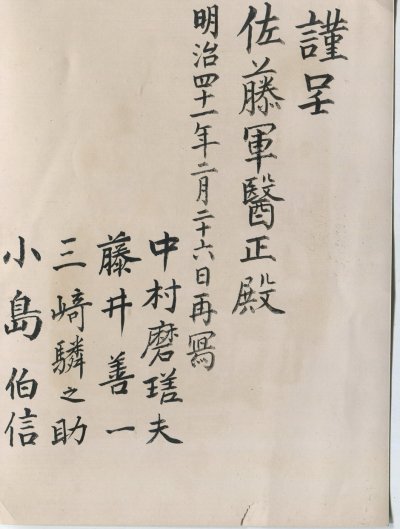 謹呈
佐藤軍醫正殿
明治四十一年二月二十六日再寫
中村磨瑳夫
藤井善一
三﨑驎之助
小島伯信